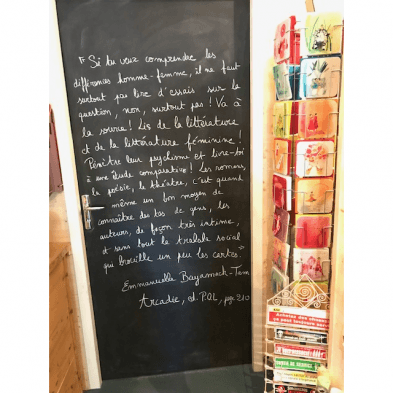 "Si tu veux comprendre les
différences homme-femme, il ne faut
surtout pas lire d'essais sur la
question, non, surtout pas ! Va à
la source ! Lis de la littérature
et de la littérature féminine !
Pénètre leur psychisme et livre-toi
à une étude comparative ! Les romans,
la poésie, le théâtre, c'est quand
même un bon moyen de
connaître des tas de gens, les
auteurs, de façon très intime,
et sans tout le tralala social
qui brouille un peu les cartes."
Emmanuelle Bayamack-Tam
Arcadie, éd. POL, page 210